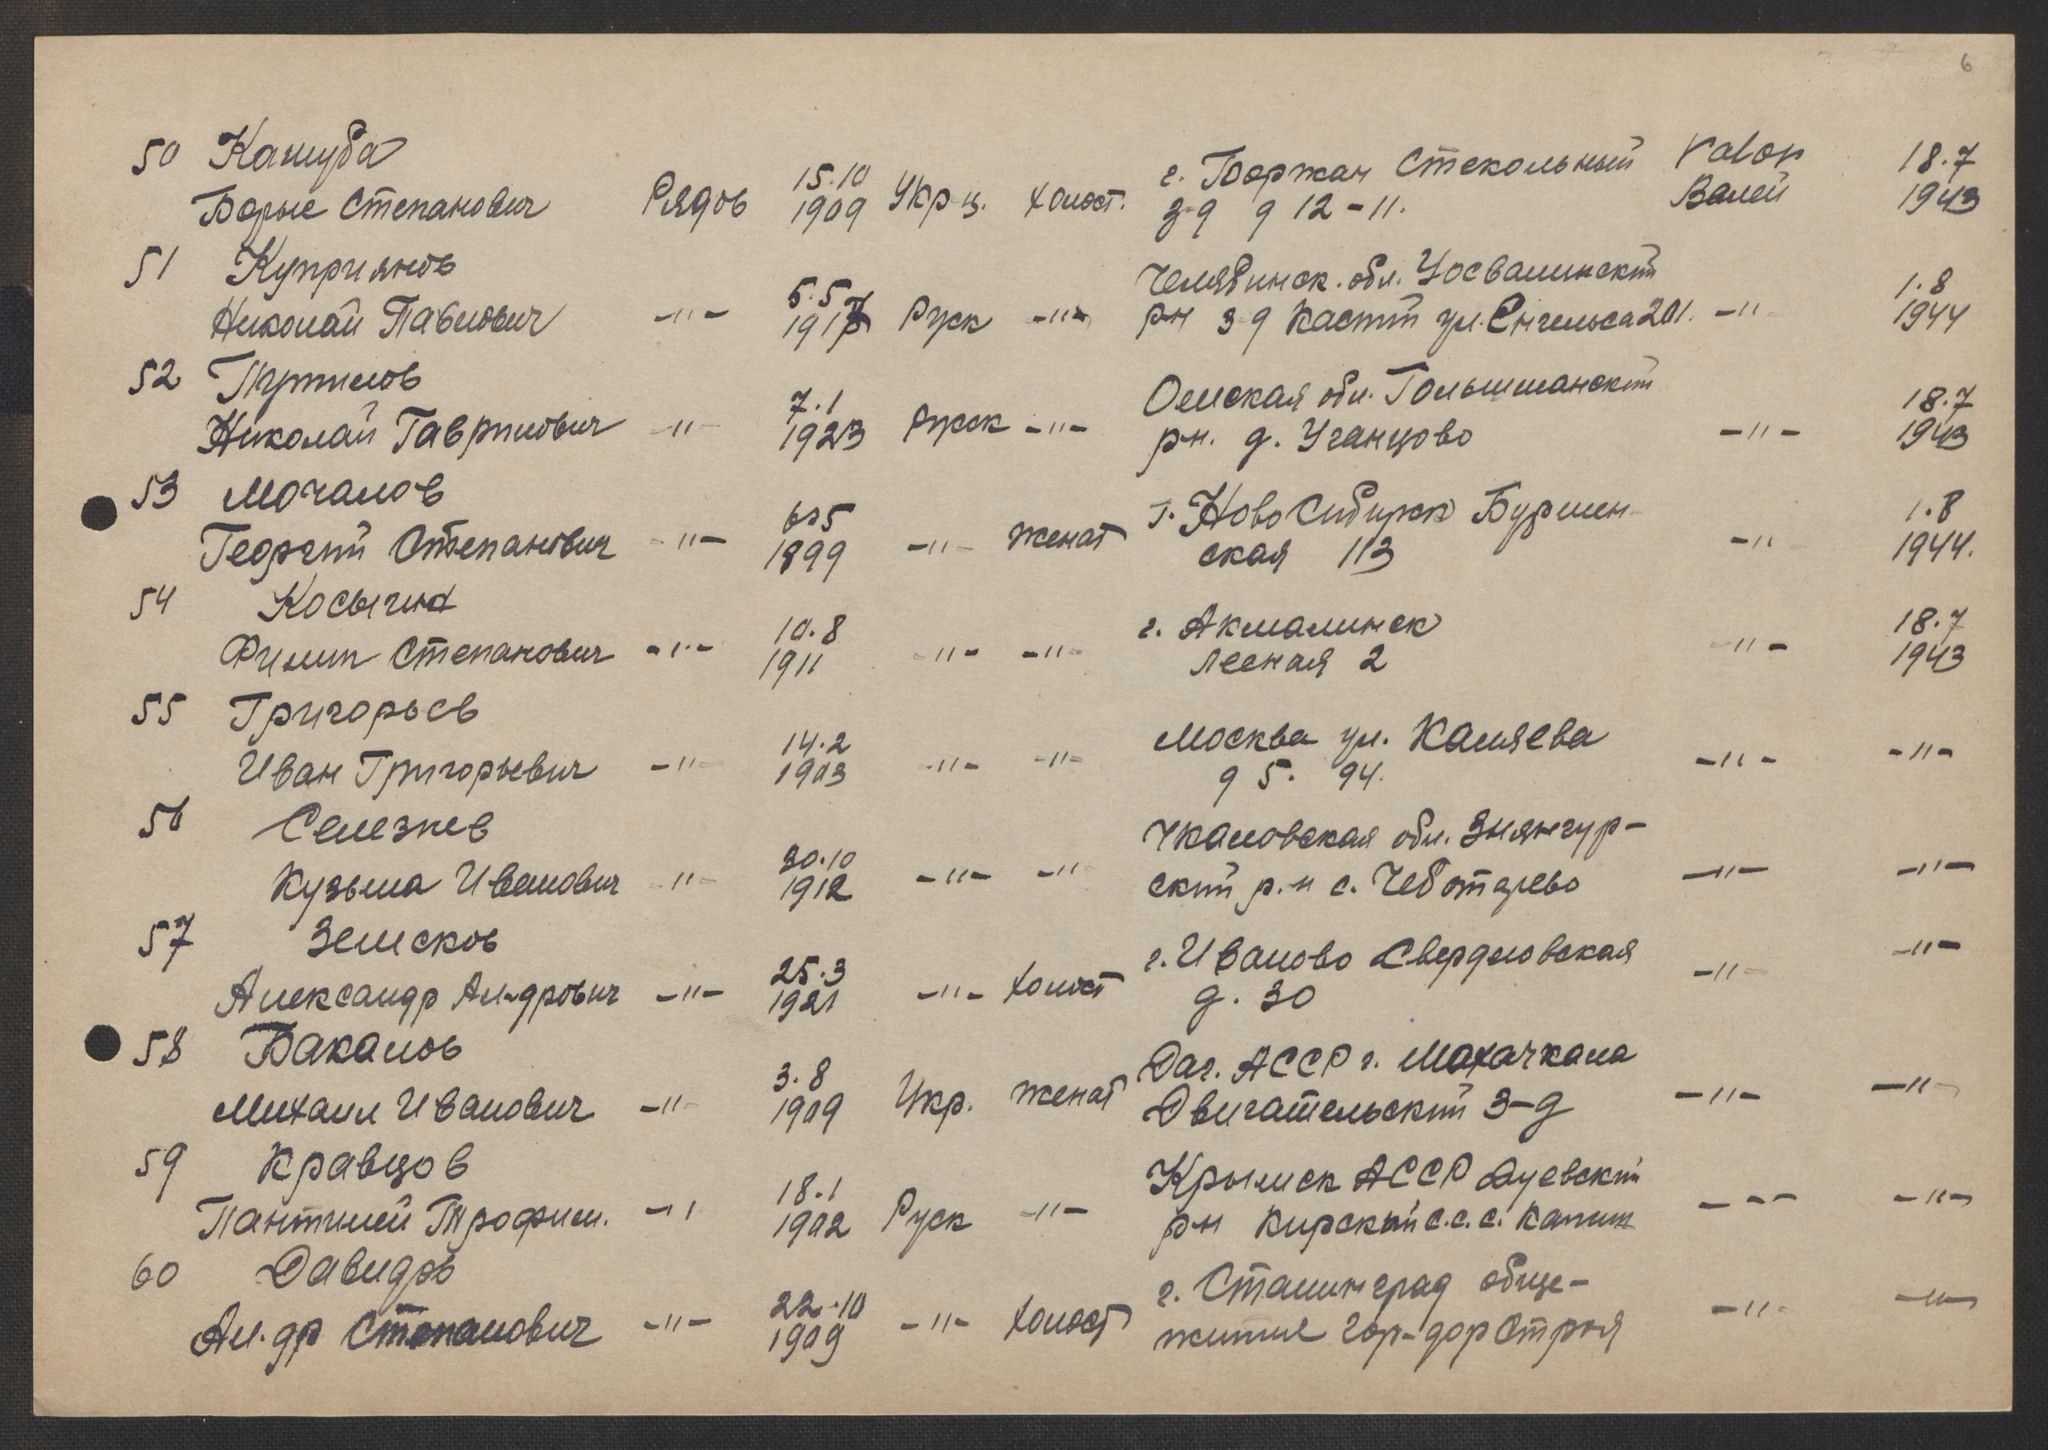 6
50 Кашуба
Борыс Степанович Рядов 15.10 1909 Укр-ц. холост. г. Бержан Стекольный з-д д 12-11. Valon Валей 18.7 1943
51 Куприянов
Николай Павлович -"- 5.5 1917 Руск -"- Челябинск. обл. Уосвалинский рн з-д Каспй ул. Енгельса 201. -"- 1.8 1944
52 Путилов
Николай Гаврилович -"- 7.1 1923 Руск -"- Омская обл. Голышманский рн. д. Уганцово -"- 18.7 1943
53 Мочалов
Георгий Степанович -"- 6.5 1899 -"- женат г. Ново Сибирск Бурлин- ская 113 -"- 1.8 1944.
54 Косыгин
Филип Степанович -"- 10.8 1911 -"- -"- г. Акмалинск Лесная 2 -"- 18.7 1943
55 Григорьев
Иван Григорьевич -"- 14.2 1903 -"- -"- Москва ул. Каляева д 5. 94. -"- -"-
56 Селезнев
Кузьма Иванович -"- 30.10 1912 -"- -"- Чкаловская обл. Зиянчур- ский р.н с. Чеботарево -"- -"-
57 Земсков
Александр Ал-дрович -"- 25.3 1921 -"- холост г. Иваново Свердловская д. 30 -"- -"-
58 Бакалов
Михаил Иванович -"- 3.8 1909 Укр. женат Даг. АССР г. Махачкала Двигательский З-д -"- -"-
59 Кравцов
Пантилей Трофим. -"- 18.1 1902 Руск -"- Крымск АССР Ауевский рн Кирский с.с. с. Капши --- -"-
60 Давидов
Ал-др Степанович -"- 22.10 1909 -"- холост г. Сталинград обще- житие Гор-дорСтроя -"- -"-